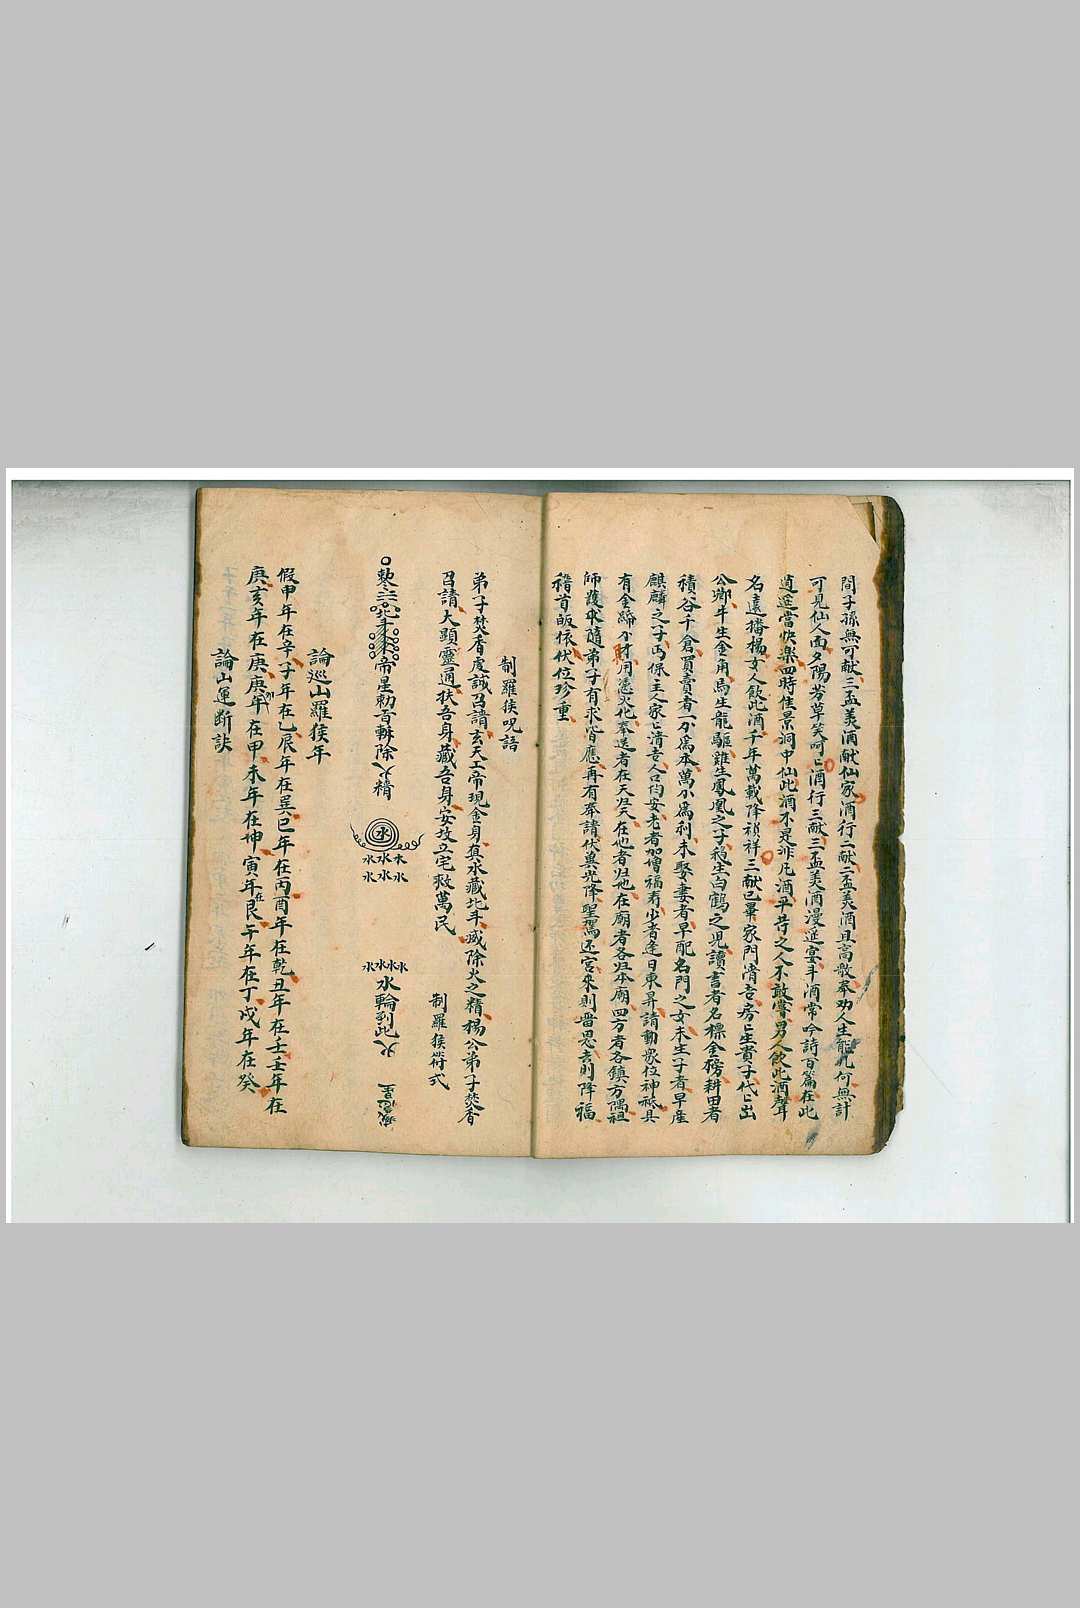 間子孫無可献三盃美酒献仙家酒行二献二盃美酒且高歌奉劝人生能几何無計
可見仙人面夕陽芳草笑呵〻酒行三献三盃美酒漫延宴斗酒常吟詩百篇在此
逍遥當快樂四時佳景洞中仙此酒不是非凡酒平昔之人不敢嘗男人飲此酒聲
名遠播揚女人飲此酒千年萬載降禎祥三献已畢家門清吉房〻生貴子代〻出
公卿牛生金角馬生龍驅雞生鳳凰之子鵝生白鶴之児讀書者名標金榜耕田者
積谷千倉買賣者一分爲本萬分爲利未娶妻者早配名門之女未生子者早産
麒麟之子丐保主人家〻清吉人口均安老者加增福寿少者逢日東昇請動衆位神祗具
有金蹄分財用憑火化奉送者在天归天在地者归地在廟者各归本廟四方者各鎮方隅祖
師護永隨弟子有求皆應再有奉請伏冀光降聖駕还宮來則畱恩去則降福
稽首皈依伏位珍重
制羅侯呪語
弟子焚香虔誠召請玄天上帝現金身真水藏北斗威除火之精楊公弟子焚香
召請大顕靈通扶吾身藏吾身安坟立宅救萬民
制羅侯符式
帝星勅百解除火精
水
水水水
水水水
水水水水
水輪到此火
論巡山羅侯年
假甲年在辛子年在乙辰年在巽巳年在丙酉年在乾丑年在壬壬年在
庚亥年在庚庚年卯在甲未年在坤寅年在艮午年在丁戌年在癸
論山運断訣